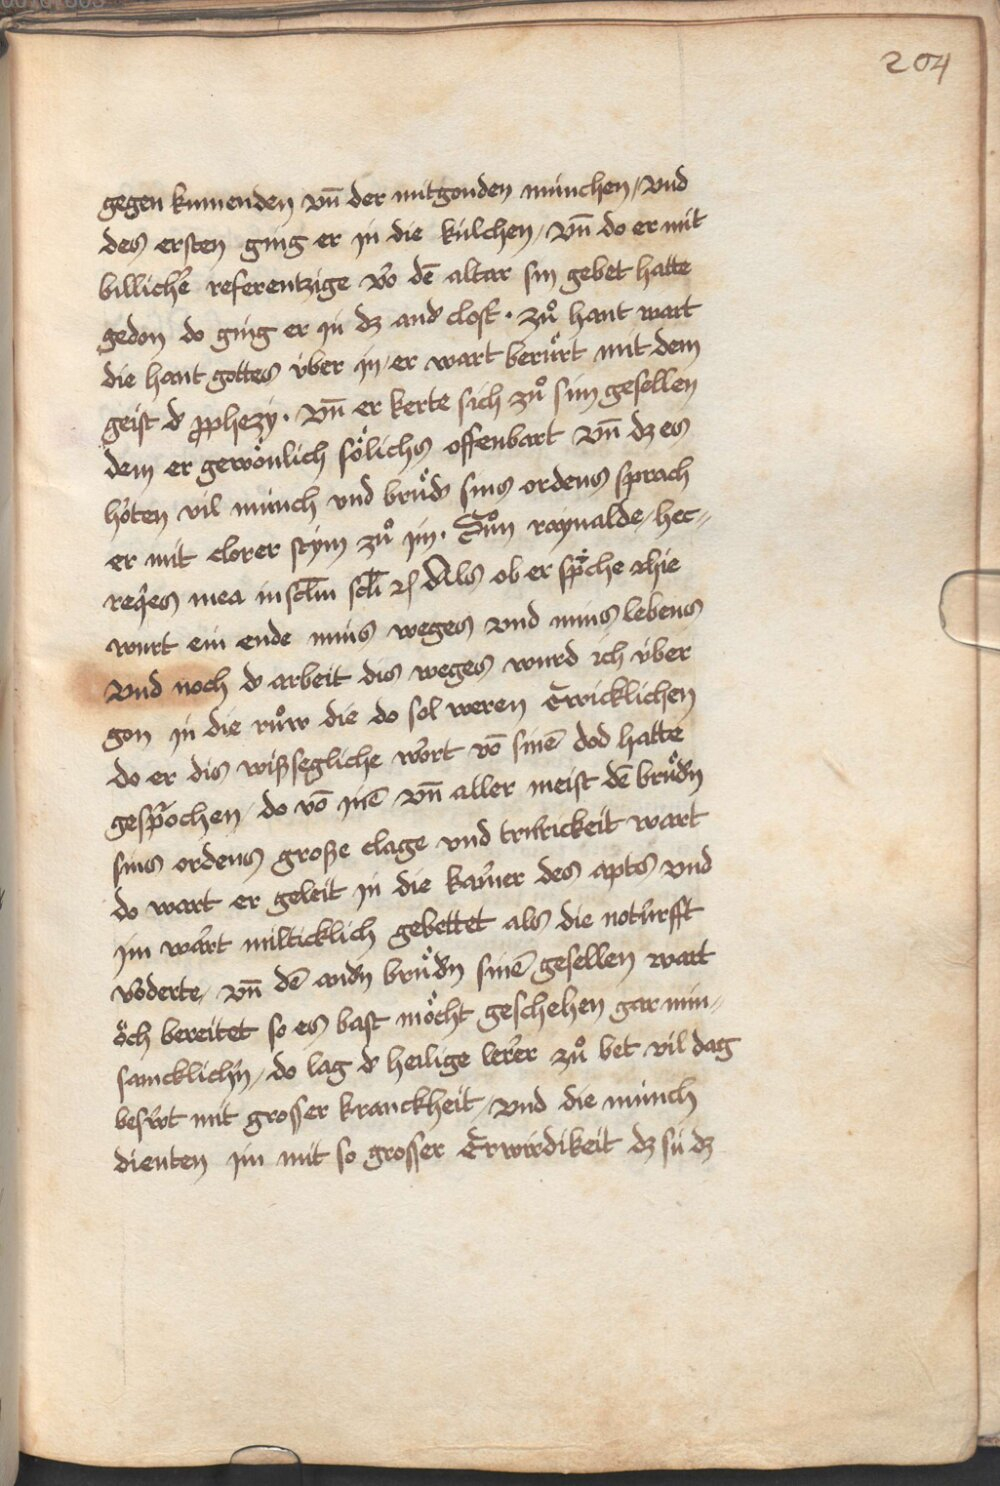 204
gegen kumenden vn̄ der mitgonden münchen / vnd
des ersten ging er in die kilchen / vn̄ do er mit
billicher referentzige vo dē altar sin gebet hatte
gedon do ging er in dz and clost . zů hant wart
die hant gottes v́ber in / er wart berůrt mit dem
geist d pphezy . vn̄ er kerte sich zů sim gesellen
dem er gewönlich sölichs offenbart vn̄ dz es
hôten vil münch vnd brůd sins ordens sprach
er mit clorer stym zů im . Sůn raynalde / hec=
reqes mea in sclm̄ scli̅ Als ob er spͤche / hie
wurt ein ende mins weges vnd mins lebens
vnd noch d arbeit dis weges wurd ich v́ber
gon in die růw die do sol weren Ewicklichen
do er dis wißsegliche wort vō sinē dod hatte
gesprochen / do vō inē vn̄ aller meist dē brůdn
sins ordens große clage vnd trurickeit wart
do wart er geleit in die kamer des apts vnd
im wart milticklich gebettet als die noturfft
voderte / vn̄ dē andn brůdn sinē gesellen wart
öch bereitet so es bast möcht geschehen gar min=
samcklichn / do lag d heilige lerer zů bet vil dag
beswt mit grosser kranckheit / vnd die münch
dienten im mit so grosser Erwirdikeit dz sü dz